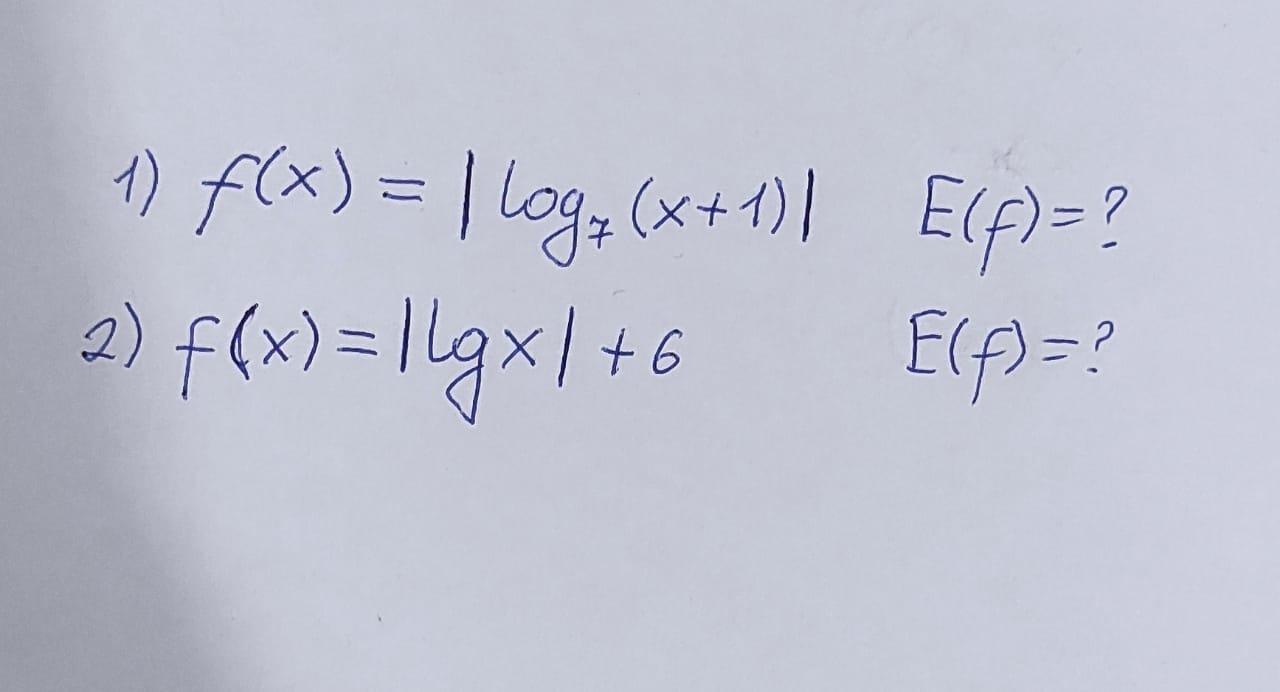 1) f(x) = | log₇ (x+1)| E(f)=?
2) f(x) = |lgx| + 6 E(f)=?